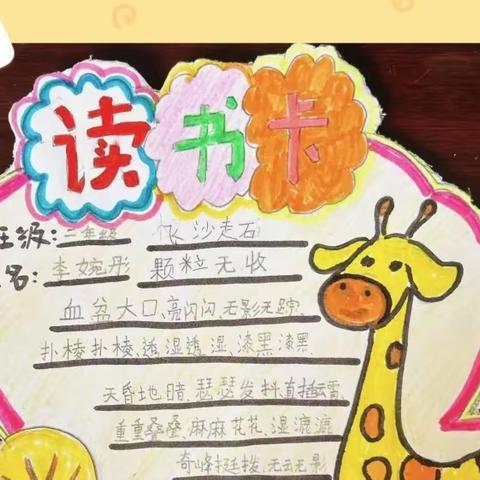 读书卡
班级:三年级 飞沙走石
名:李婉彤 颗粒无收
血盆大口、亮闪闪、无影无踪、
扑棱扑棱、透湿透湿、漆黑漆黑、
天昏地暗、瑟瑟发抖、直插云霄、
重重叠叠、麻麻花花、湿漉漉、
奇峰挺拔、无云无影